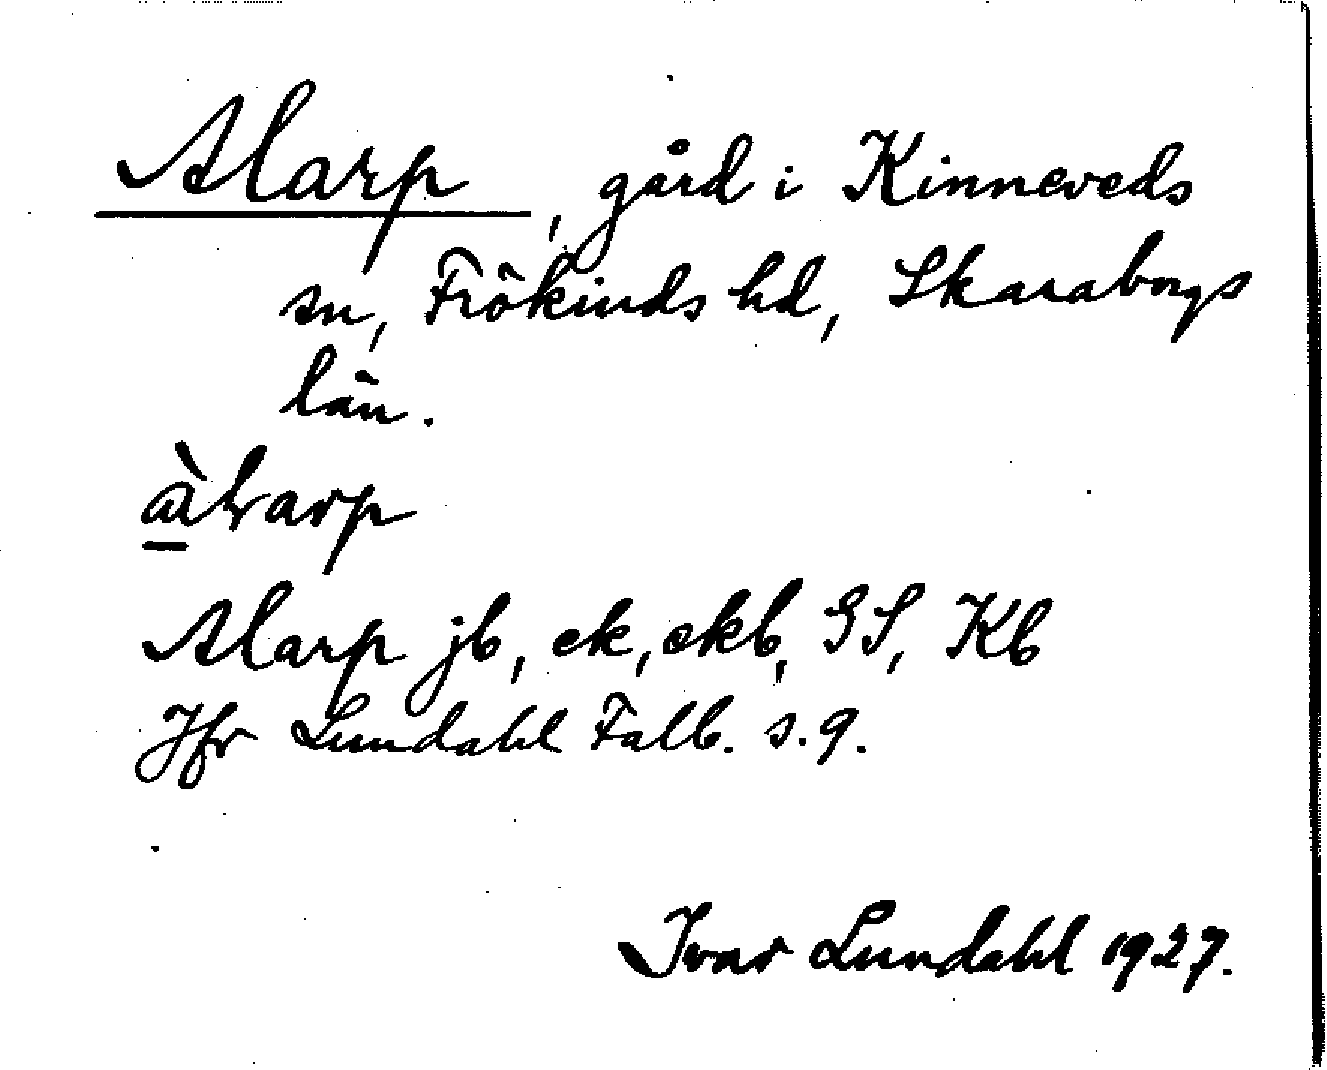 Alarp, gård i Kinneveds
sn, Frökinds hd, Skaraborgs
län.
àlarp
Alarp jb, ek, skb, GS, Kb
Jfr Lundahl Falb. s. 9.
Ivar Lundahl 1927.